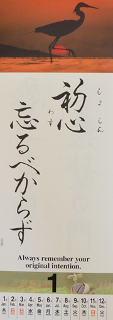 初心
しょしん
忘るべからず
わす
Always remember your
original intention.
1
1 2 3 4 5 6 7 8 9 10 11 12